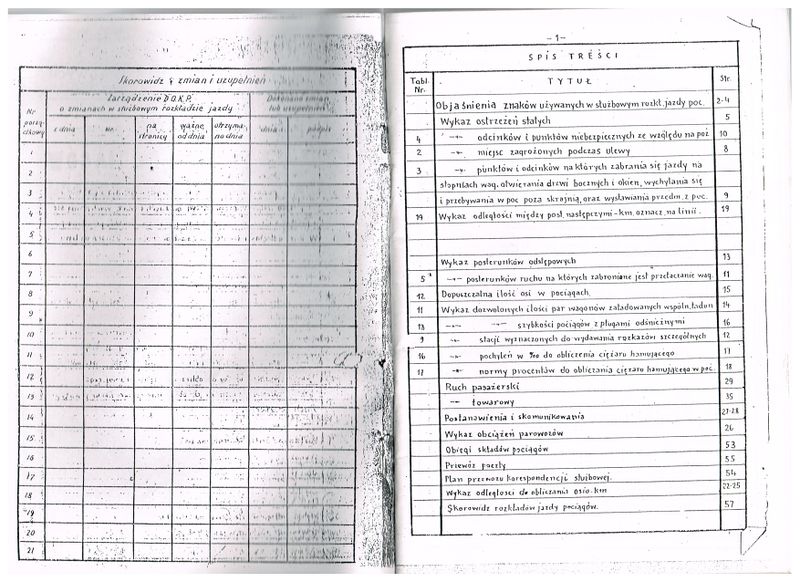 Skorowidz zmian i uzupełnień
Nr porządkowy
Zarządzenie D.O.K.P. o zmianach w służbowym rozkładzie jazdy
z dnia
nr.
na stronicy
ważne od dnia
otrzymano dnia
dnia
podpis
1
2
3
4
5
6
7
8
9
10
11
12
13
14
15
16
17
18
19
20
21
-1-
SPIS TREŚCI
Tabl. Nr.
TYTUŁ
Str.
Objaśnienia znaków używanych w służbowym rozkł. jazdy poc. 2-4
Wykaz ostrzeżeń stałych 5
4 -"- odcinków i punktów niebezpiecznych ze względu na poż 10
2 -"- miejsc zagrożonych podczas ulewy 8
3 -"- punktów i odcinków na których zabrania się jazdy na
stopniach wag. otwierania drzwi bocznych i okien, wychylania się
i przebywania w poc poza skrajnią, oraz wystawiania przedm. z poc. 9
19 Wykaz odległości między post. następczymi - km. oznacz. na linii. 19
Wykaz posterunków odstępowych 13
5 -"- posterunków ruchu na których zabronione jest przetaczanie wag. 11
12 Dopuszczalna ilość osi w pociągach. 15
11 Wykaz dozwolonych ilości par wagonów załadowanych wspóln. ładun 14
13 -"- -"- szybkości pociągów z pługami odśnieżnymi 16
9 -"- stacji wyznaczonych do wydawania rozkazów szczególnych 12
16 -"- pochyleń w ‰ do obliczenia ciężaru hamującego 17
17 -"- normy procentów do obliczania ciężaru hamującego w poc. 18
Ruch pasażerski 29
-"- towarowy 35
Postanowienia i skomunikowania 27-28
Wykaz obciążeń parowozów 26
Obiegi składów pociągów 53
Przewóz poczty 55
Plan przewozu korespondencji służbowej. 54
Wykaz odległości do obliczania osio. km 22-25
Skorowidz rozkładów jazdy pociągów. 57